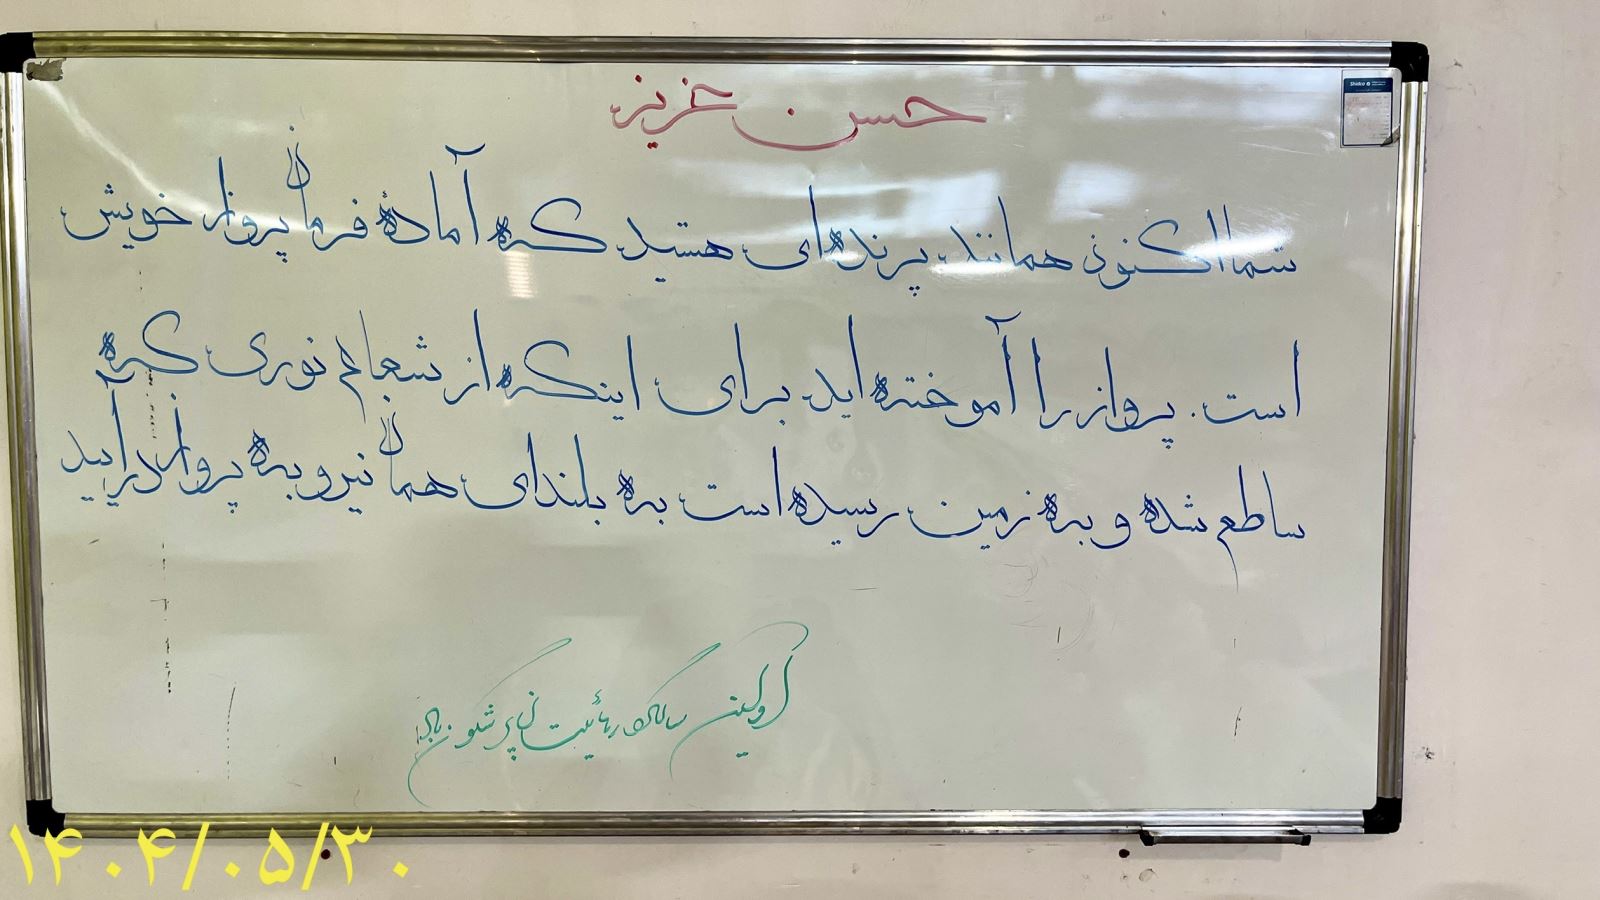 حسن عزیز
شما اکنون همانند پرنده‌ای هستید که آمادهٔ فرمان پرواز خویش
است. پرواز را آموخته اید برای اینکه از شعاع نوری که
ساطع شده و به زمین رسیده است به بلندای همان نیرو به پرواز درآیید
اولین سالگرد رهائیت پرشکون باد
۱۴۰۴/۰۵/۳۰